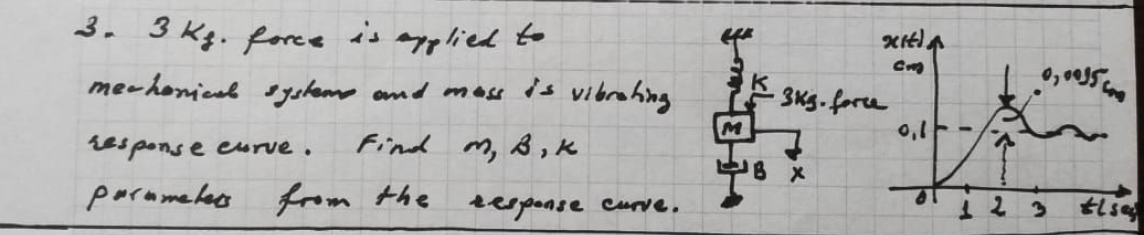 3. 3 Kg. force is applied to
mechanical system and mass is vibrating
response curve. Find m, B, K
parameters from the response curve.
K
3Kg.force
M
B
X
x(t)
cm
0,0095 cm
0,1
0 1 2 3 t(sec)